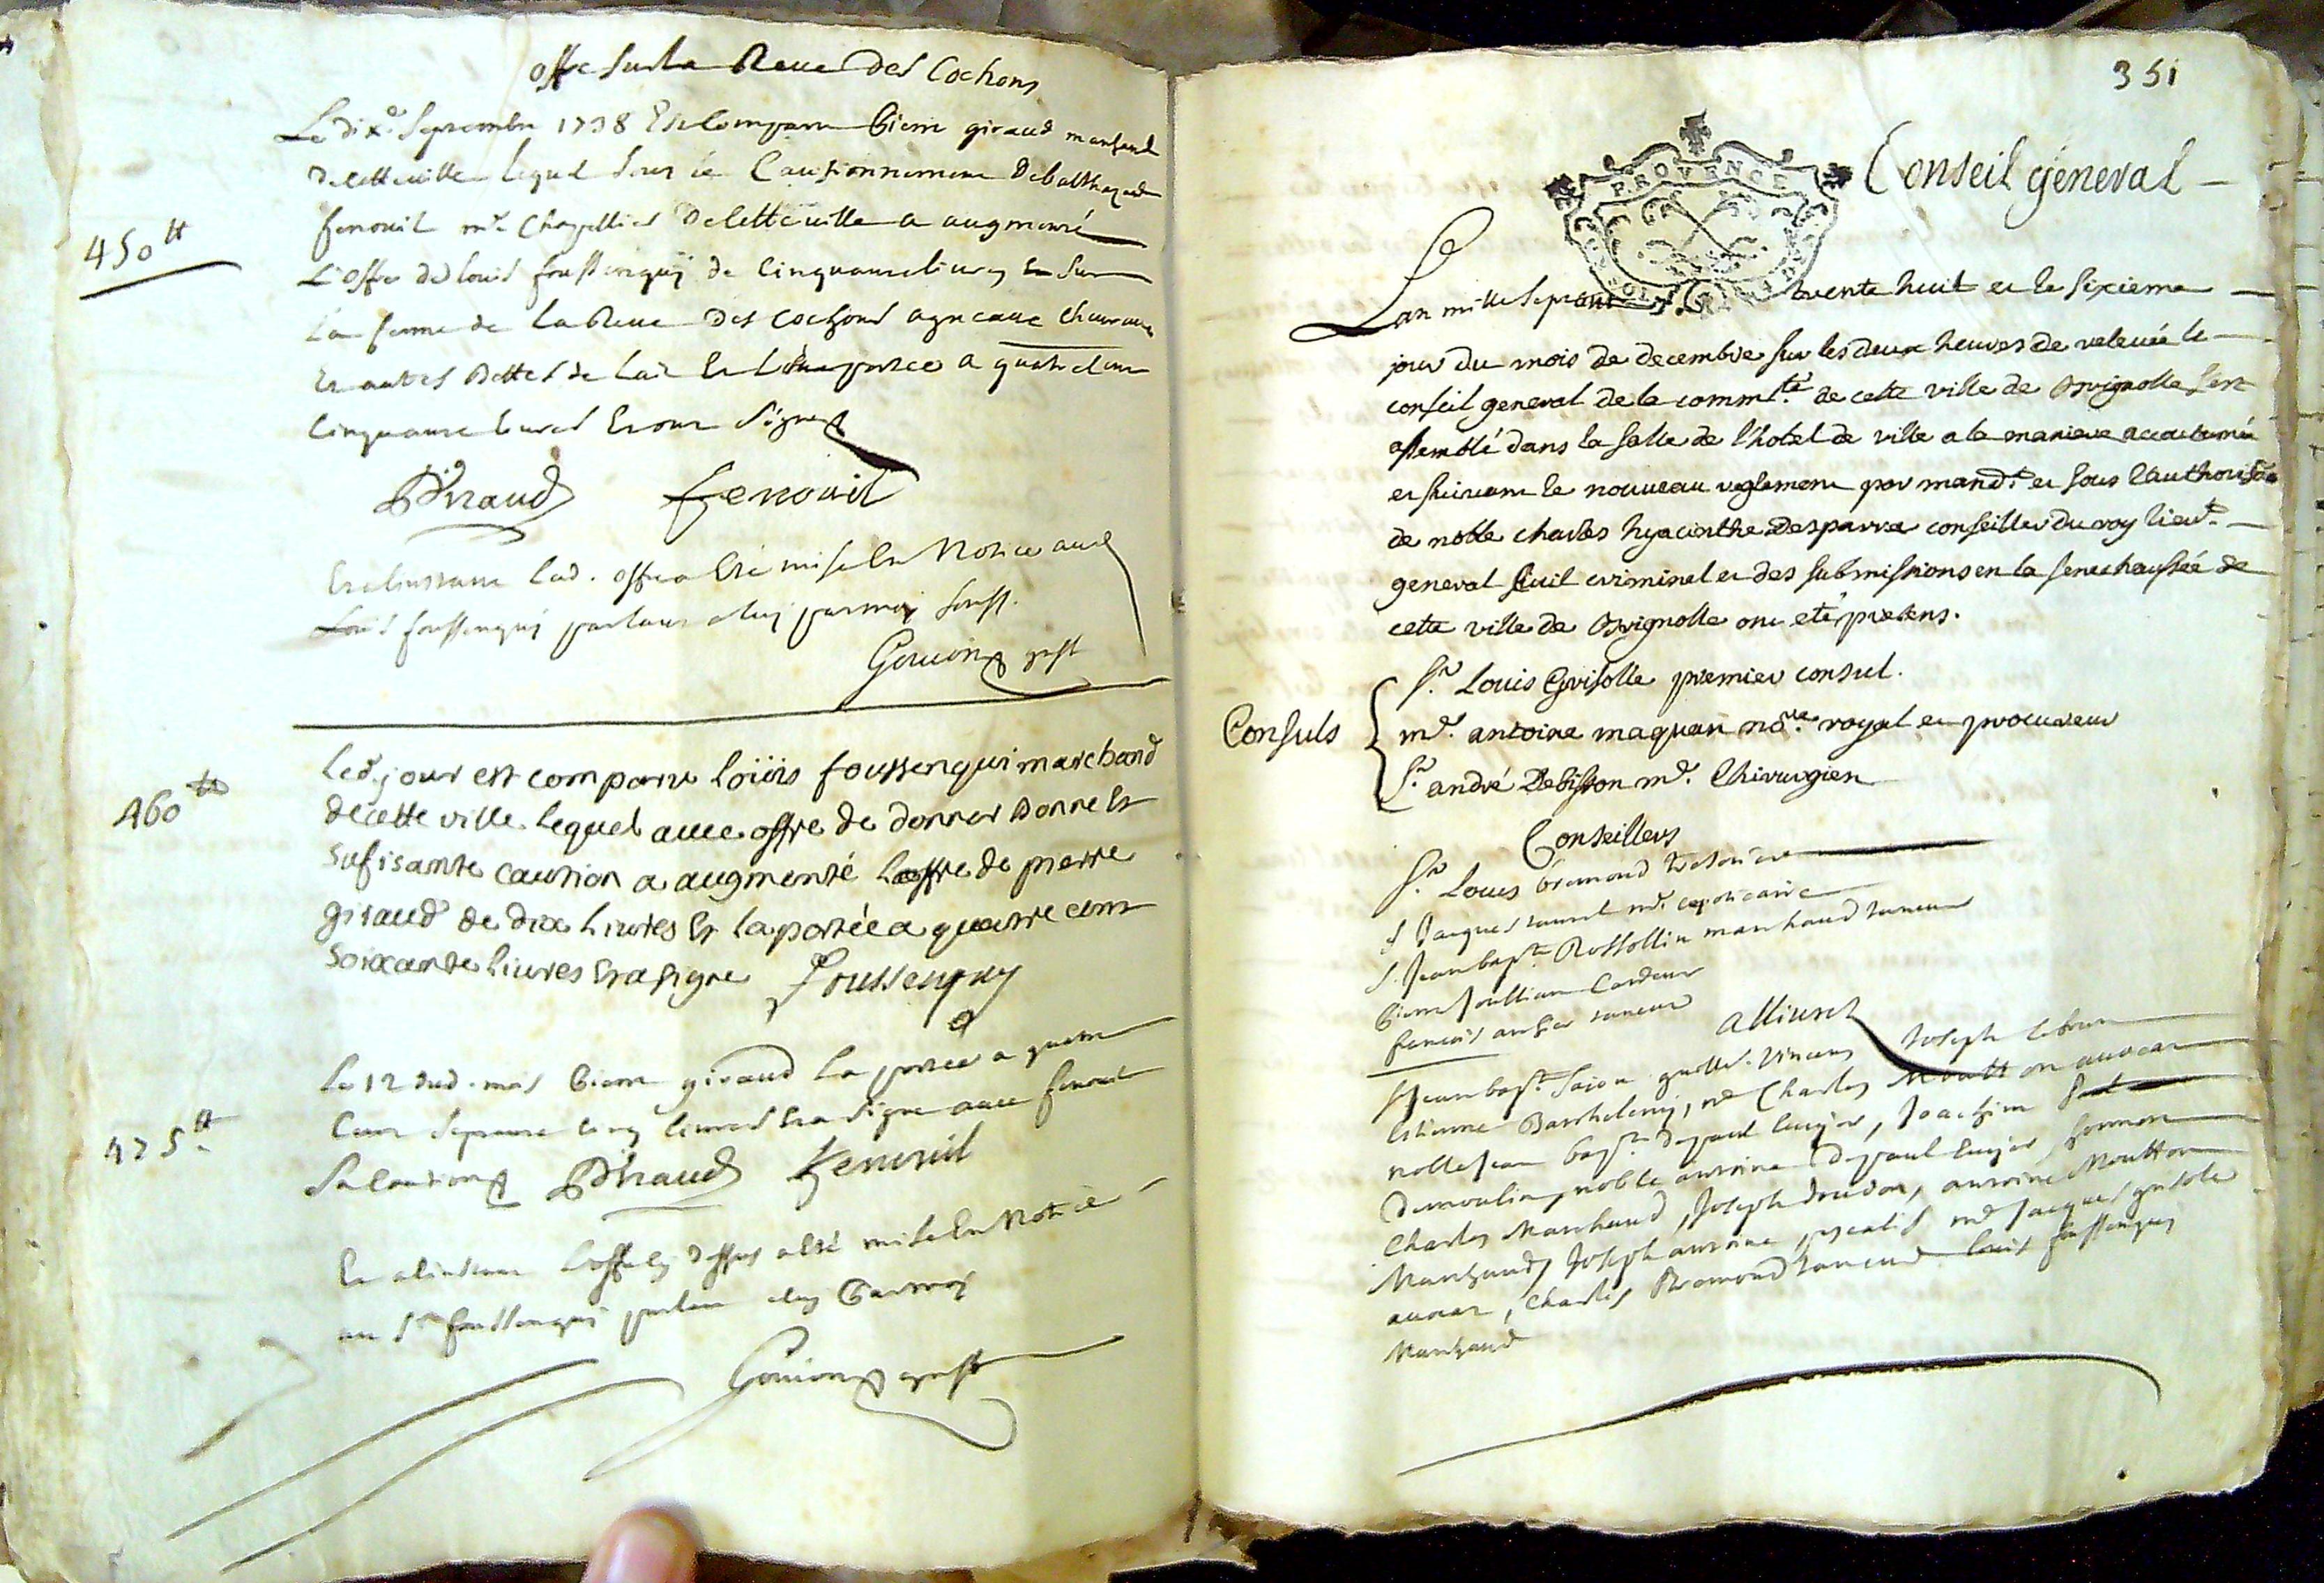 offre sur la Reue des Cochons
Le dixe. Septembre 1738 Est Comparu Pierre giraud marchand
de cette ville lequel sous le Cautionnement de balthazard
fenouil me. Chapellier de cette ville a augmenté
450tt
L'offre de louis foussenquy de Cinquante livres En sur
la ferme de la Reue des cochons agneaux chevraux
Et autres Bettes de lait Et l'a portee a quatre Cens
Cinquante livres Et ont Signe
PGiraud fenouil
Et a l'instant lad. offre a Eté mise En Notice aud.
Louis foussenquy parlant a luy par moy souss.
Gouion greff
Led. jour est comparu loüis foussenqui marchand
460tt
de cette ville lequel avec offre de donner Bonne Et
sufisante caution a augmenté Loffre de pierre
giraud de dix livres Et la portée a quatre cens
Soixante livres Et a signe Foussenquy
Le 12 dud. mois Pierre giraud La portee a quatre
475tt
Cens septante Cinq livres Et a signe avec fenouil
Sa Caution PGiraud fenouil
Et a l'instant L'offre cy dessus a Eté mise En Notice
au Sr foussenquy parlant a luy Par moy
Gouion greff
351
PROVENCE
Conseil géneral
Lan mille sept cent trente huit et le sixieme
jour du mois de decembre sur les deux heures de relevée le
conseil general de la commté. de cette ville de Brignolle s'est
assemblé dans la salle de l'hotel de ville a la maniere accoutumée
et suivant le nouveau reglement par mandt. et sous l'authorisaõn
de noble charles hyacinthe Desparra conseiller du roy lieut.
general Civil criminel et des submissions en la senechaussée de
cette ville de Brignolle ont eté presens.
Sr. Louis Grisolle premier consul.
Consuls
me. antoine maquan nore. royal et procureur
Sr. andré Debisson me. Chirurgien
Conseillers
Sr. Louis bremond tresorier
S Jacques taurel me. apoticaire
S. Jean bapte. Rossollin marchand taneur
Pierre Joullian Cardeur
francois taneur
Allivrés
S Jean bapte. guille. Vincens Joseph lebrun
Estienne Barthelemy, me Charles Moutton avocat
noble Jean bapte. depaul Joachim
Dumoulin, noble antoine depaul
Charles Marchand, Joseph antoine Moutton
Marchand, Joseph antoine me Jacques grisole
avocat, Charles Bremond taneur louis foussenquy
Marchand